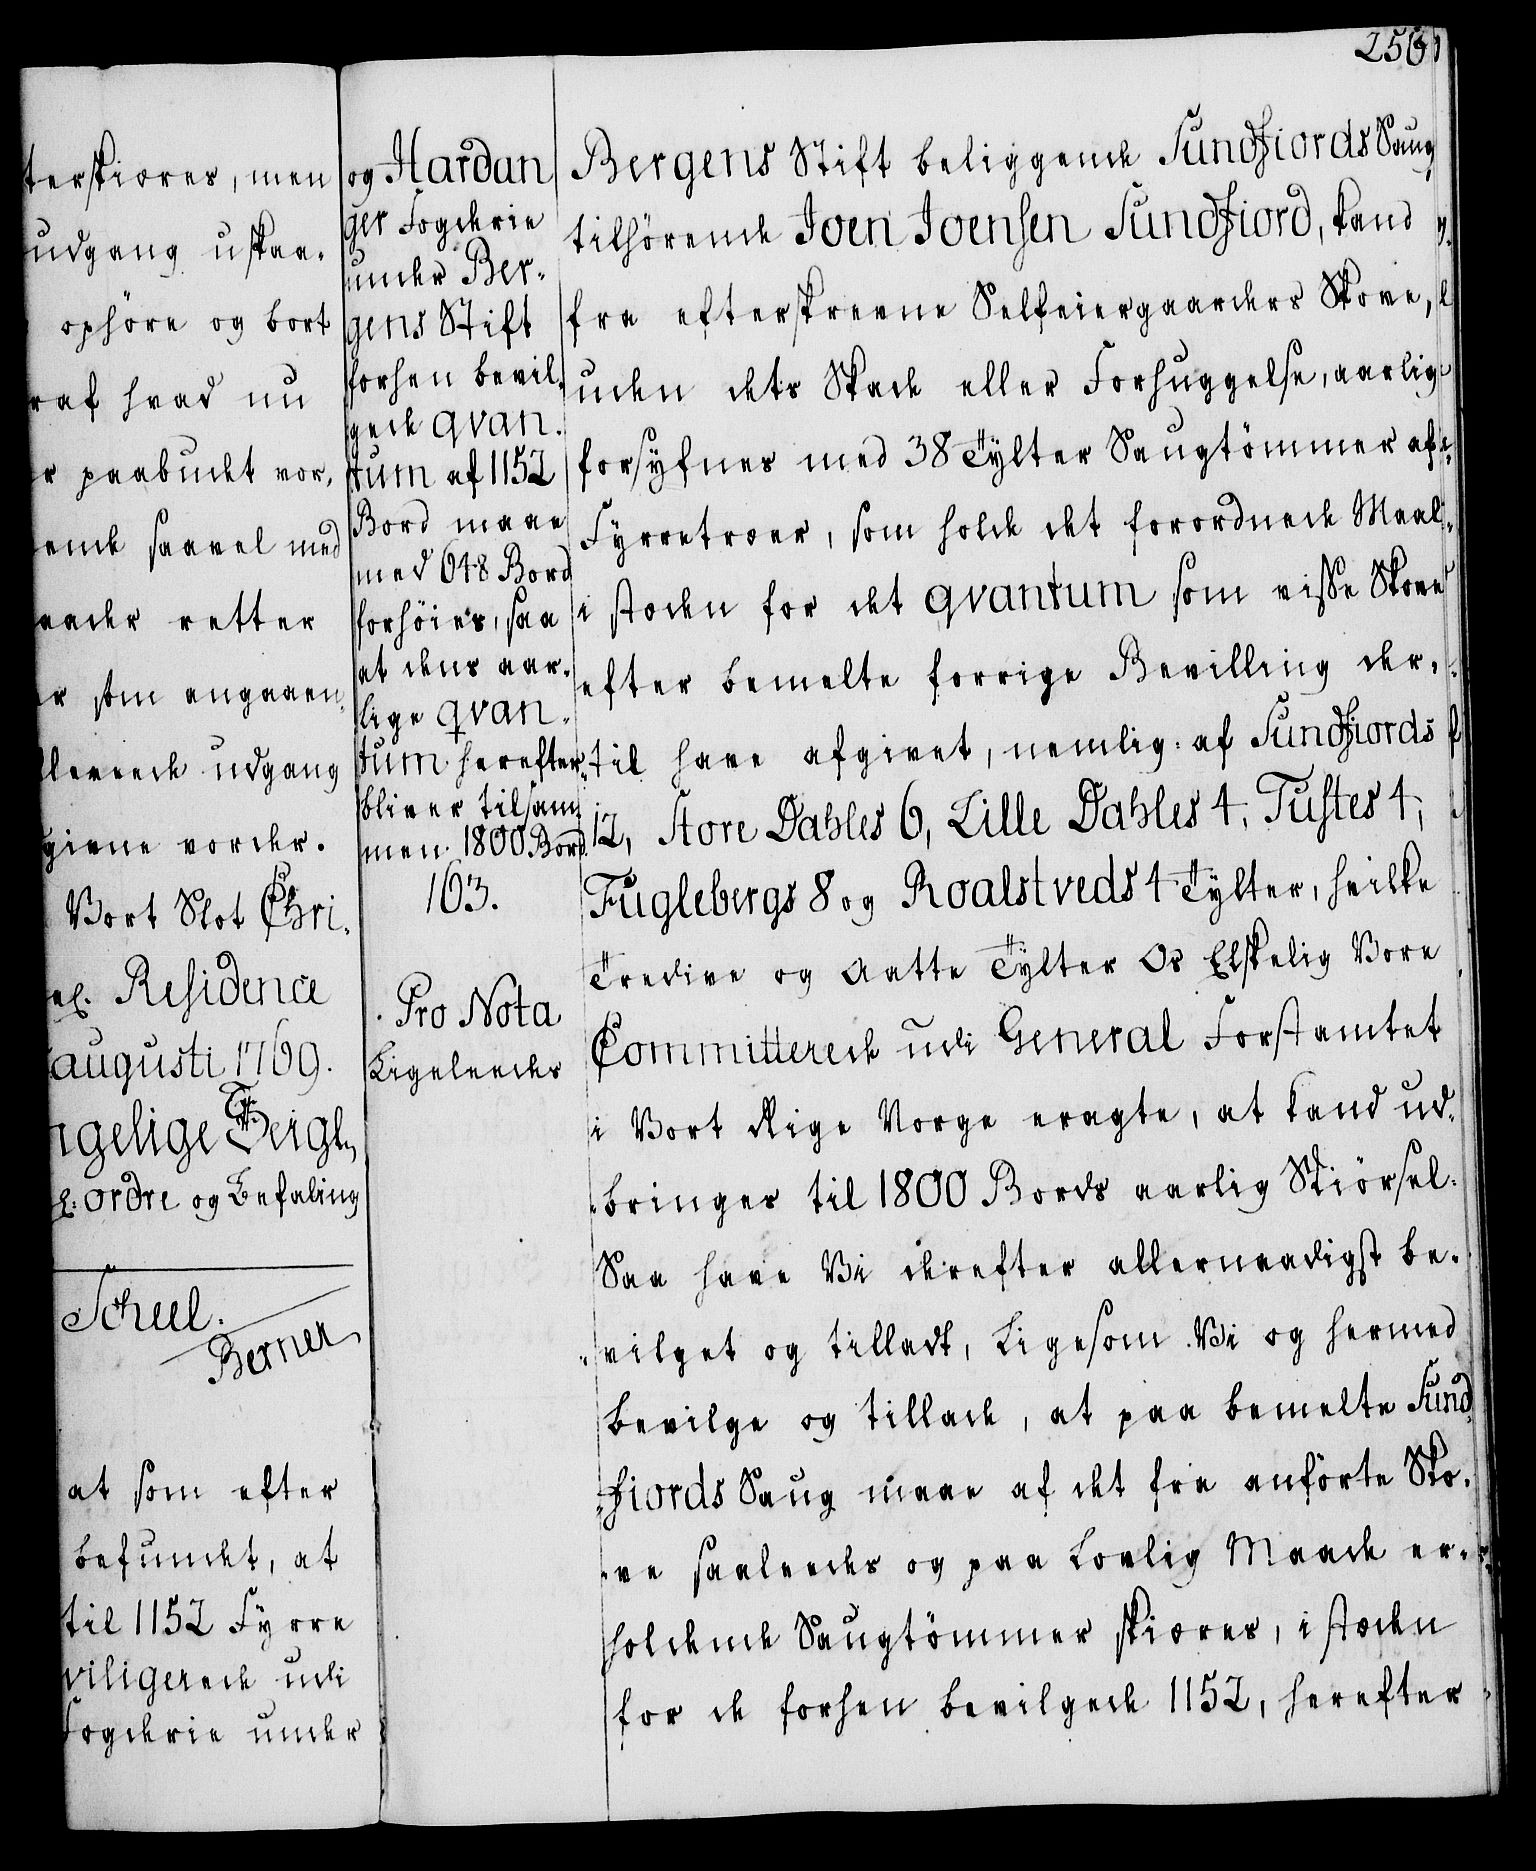 256
terskiæres, men
udgang uskaa-
ophöre og bort
raf hvad nu
r paabudet vor,
ende saavel med
aader retter
r som angaaen-
leveede udgang
givne vorder.
Vort Slot Chri-
Residence
augusti 1769.
ngelige Seigl
ordre og Befaling
Scheel.
Berner
at som efter
befundet, at
til 1152 Fyrre
viligerede udi
Fogderie under
og Hardan
ger Fogderie
under Ber-
gens Stift
forhen bevil-
gede qvan-
tum af 1152
Bord maae
med 648 Bord
forhöies, saa
at dens aar-
lige qvan-
tum herefter
bliver tilsam
men 1800 Bord.
163.
Pro Nota
Ligeleedes
Bergens Stift beliggende Sundfiords Saug,
tilhörende Joen Joensen Sundfiord, kand
fra efterskrevne Selveiergaarders Skove,
uden dets Skade eller Forhuggelse, aarlig
forsÿfnes med 38 Tÿlter Saugtömmer af
Fÿrretræer, som holde det forordnede Maal
i stæden for det qvantum som visse Skove
efter bemelte forrige Bevilling der-
til have afgivet, nemlig: af Sundfiords
12, Store Dahles 6, Lille Dahles 4, Tustes 4,
Fuglebergs 8 og Roalstveds 4 Tÿlter, hvilke
Tredive og Aatte Tÿlter Os Elskelig Vore
Committerede udi General Forstamtet
i Vort Rige Norge eragte, at kand ud-
bringes til 1800 Bords aarlig Skiörsel.
Saa have Vi derefter allernaadigst be-
vilget og tilladt, Ligesom Vi og hermed
bevilge og tillade, at paa bemelte Sund
fiords Saug maae af det fra anförte Sko-
ve saaleedes og paa Lovlig Maade er-
holdende Saugtömmer skiæres, i stæden
for de forhen bevilgede 1152, herefter